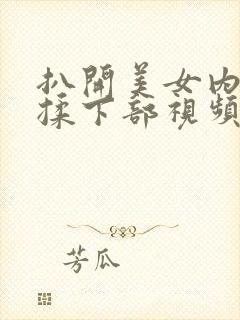 扒開美女内
揉下部視頻
芳瓜